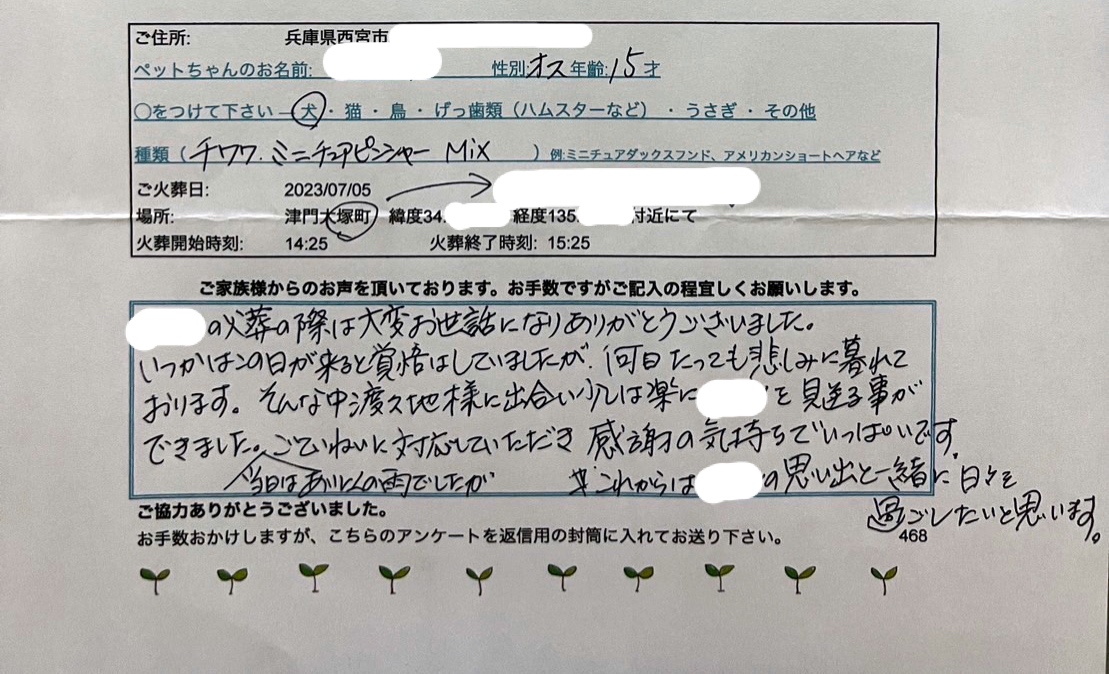 ご住所: 兵庫県西宮市
ペットちゃんのお名前: 性別:オス 年齢:15才
○をつけて下さい 犬・猫・鳥・げっ歯類(ハムスターなど)・うさぎ・その他
種類(チワワ.ミニチュアピンシャー Mix )例:ミニチュアダックスフンド、アメリカンショートヘアなど
ご火葬日: 2023/07/05
場所: 津門大塚町 緯度34. 経度135. 付近にて
火葬開始時刻: 14:25 火葬終了時刻: 15:25
ご家族様からのお声を頂いております。お手数ですがご記入の程宜しくお願いします。
の火葬の際は大変お世話になりありがとうございました。
いつかはこの日が来ると覚悟はしていましたが、何日たっても悲しみに暮れて
おります。そんな中渡々地様に出合い少しは楽に を見送る事が
できました。ごていねいに対応していただき 感謝の気持ちでいっぱいです。
当日はあいにくの雨でしたが これからは の思い出と一緒に日々を
過ごしたいと思います。
ご協力ありがとうございました。
お手数おかけしますが、こちらのアンケートを返信用の封筒に入れてお送り下さい。
468